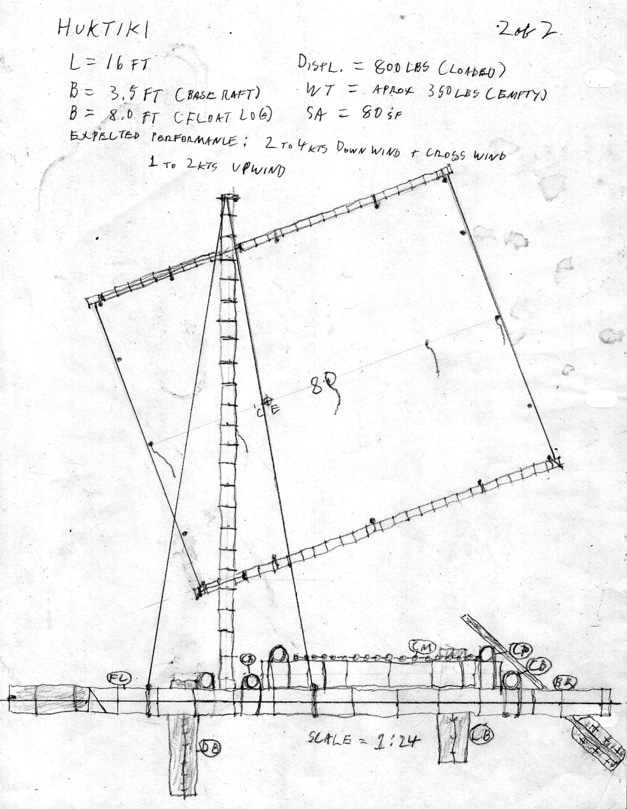 HUKTIKI
2 of 2
L = 16 FT
DISPL. = 800 LBS (LOADED)
B = 3.5 FT (BASE RAFT)
WT = APROX 350 LBS (EMPTY)
B = 8.0 FT (FLOAT LOG)
SA = 80 SF
EXPECTED PERFORMANCE: 2 TO 4 KTS DOWN WIND + CROSS WIND
1 TO 2 KTS UPWIND
80
CE
CM
CP
CB
FL
BR
DB
LB
SCALE = 1:24